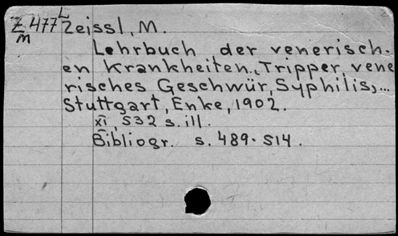 L
Z 477 Zeissl, M.
M
Lehrbuch der venerisch-
en Krankheiten, Tripper, vene
risches Geschwür, Syphilis, ...
Stuttgart, Enke, 1902.
XI, 532 s. ill.
Bibliogr. s. 489-514.